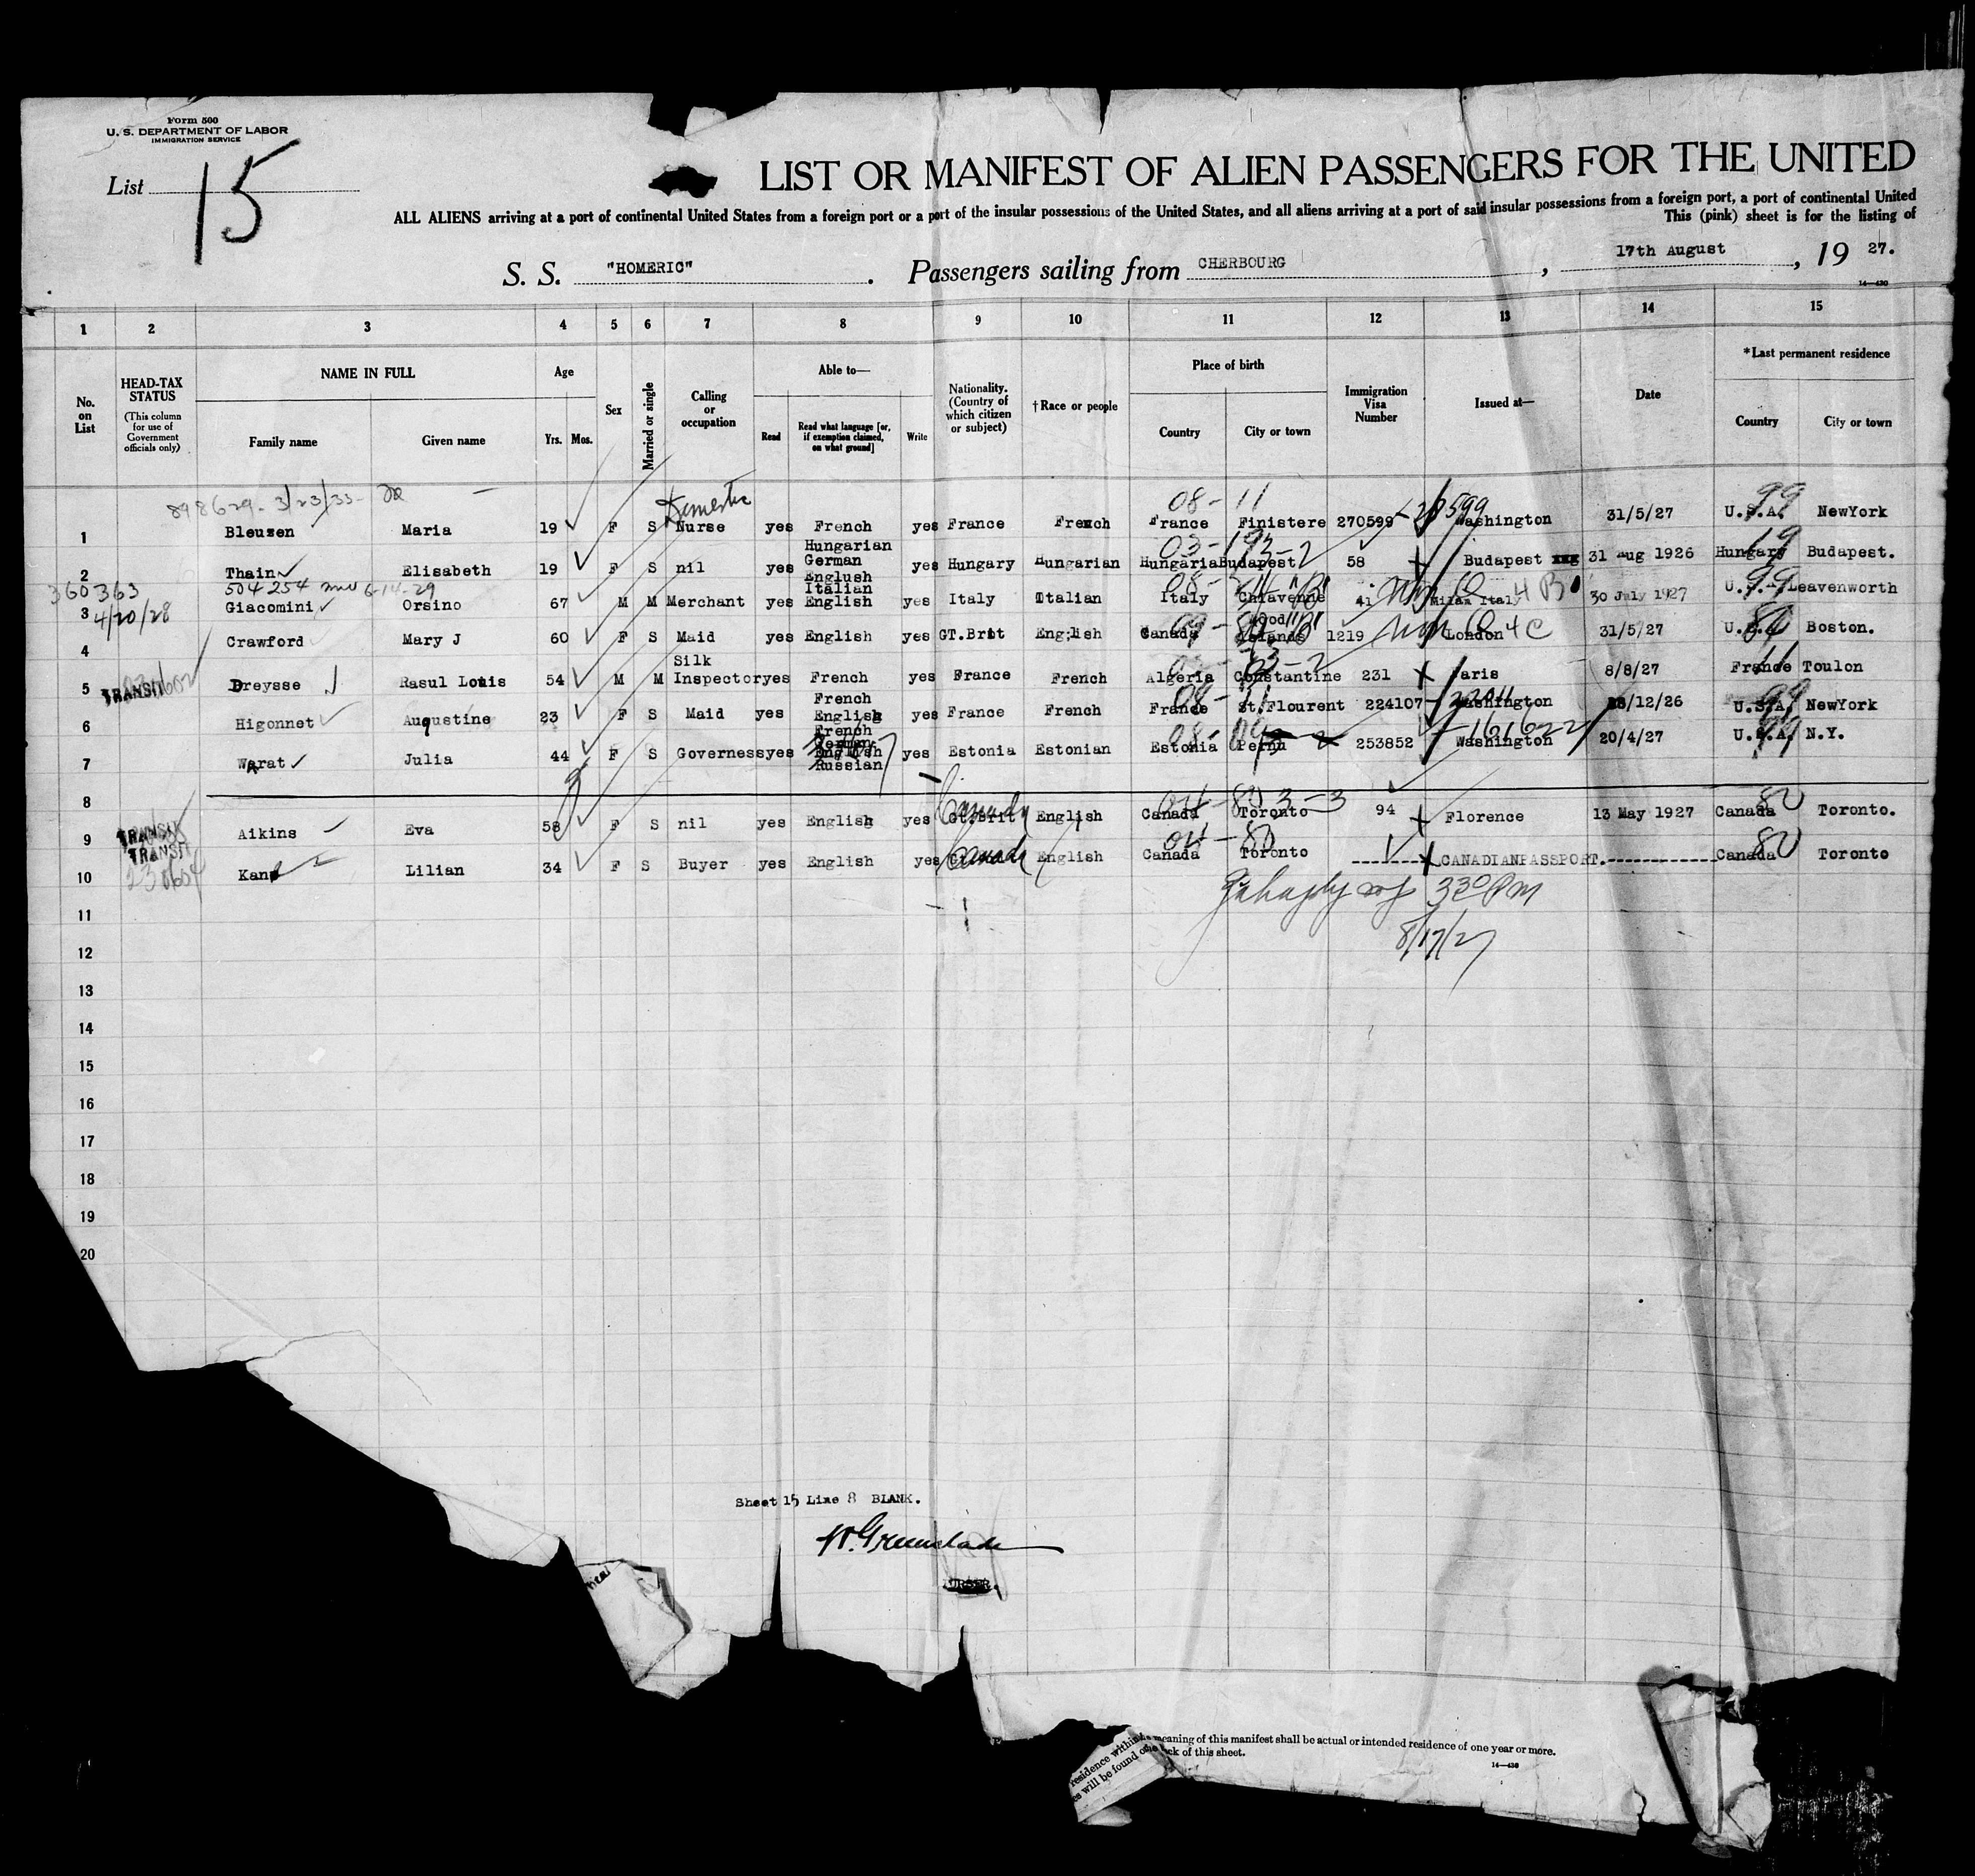 Form 500
U. S. DEPARTMENT OF LABOR
IMMIGRATION SERVICE
List 15
LIST OR MANIFEST OF ALIEN PASSENGERS FOR THE UNITED
ALL ALIENS arriving at a port of continental United States from a foreign port or a port of the insular possessions of the United States, and all aliens arriving at a port of said insular possessions from a foreign port, a port of continental United
This (pink) sheet is for the listing of
S. S. "HOMERIC". Passengers sailing from CHERBOURG, 17th August, 19 27.
14—430
1 2 3 4 5 6 7 8 9 10 11 12 13 14 15
No. on List
HEAD-TAX STATUS
(This column for use of Government officials only)
NAME IN FULL
Family name Given name
Age
Yrs. Mos.
Sex
Married or single
Calling or occupation
Able to—
Read
Read what language [or, if exemption claimed, on what ground]
Write
Nationality. (Country of which citizen or subject)
†Race or people
Place of birth
Country City or town
Immigration Visa Number
Issued at—
Date
*Last permanent residence
Country City or town
898629. 3/23/33 Domestic 08-11 99
1 Bleuzen Maria 19 F S Nurse yes French yes France French France Finistere 270599 Washington 31/5/27 U.S.A. NewYork
Hungarian
German
2 Thain Elisabeth 19 F S nil yes English yes Hungary Hungarian Hungaria Budapest 58 Budapest 31 Aug 1926 Hungary Budapest.
360363 504254 6-14-29
Italian
3 4/20/28 Giacomini Orsino 67 M M Merchant yes English yes Italy Italian Italy Chiavenne 41 Milan Italy 4 B 30 July 1927 U.S.A. Leavenworth
4 Crawford Mary J 60 F S Maid yes English yes GT.Brit English Canada Wood Islands 1219 London 4 C 31/5/27 Boston.
Silk
5 TRANSIT Dreysse Rasul Louis 54 M M Inspector yes French yes France French Algeria Constantine 231 Paris 8/8/27 France Toulon
French
6 Higonnet Augustine 23 F S Maid yes English yes France French France St.Flourent 224107 Washington /12/26 U.S.A. NewYork
French
German
English
7 Warat Julia 44 F S Governess yes Russian yes Estonia Estonian Estonia 253852 Washington 20/4/27 U.S.A. N.Y.
8
9 TRANSIT Aikins Eva 58 F S nil yes English yes Canada English Canada Toronto 94 Florence 13 May 1927 Canada Toronto.
10 TRANSIT Lilian 34 F S Buyer yes English yes Canada English Canada Toronto CANADIANPASSPORT. Canada Toronto
330 PM
8/17/27
11
12
13
14
15
16
17
18
19
20
Sheet 15 Line 8 BLANK.
meaning of this manifest shall be actual or intended residence of one year or more.
residence within
es will be found on
ck of this sheet.
14—430